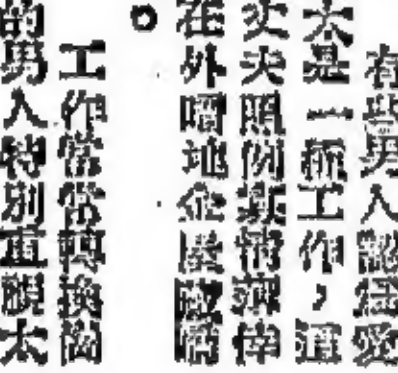 有些男人認為愛
太是一種工作，這
丈夫照例情薄倖
在外地金屋
。
工作常常轉換崗
的男人特別重視太